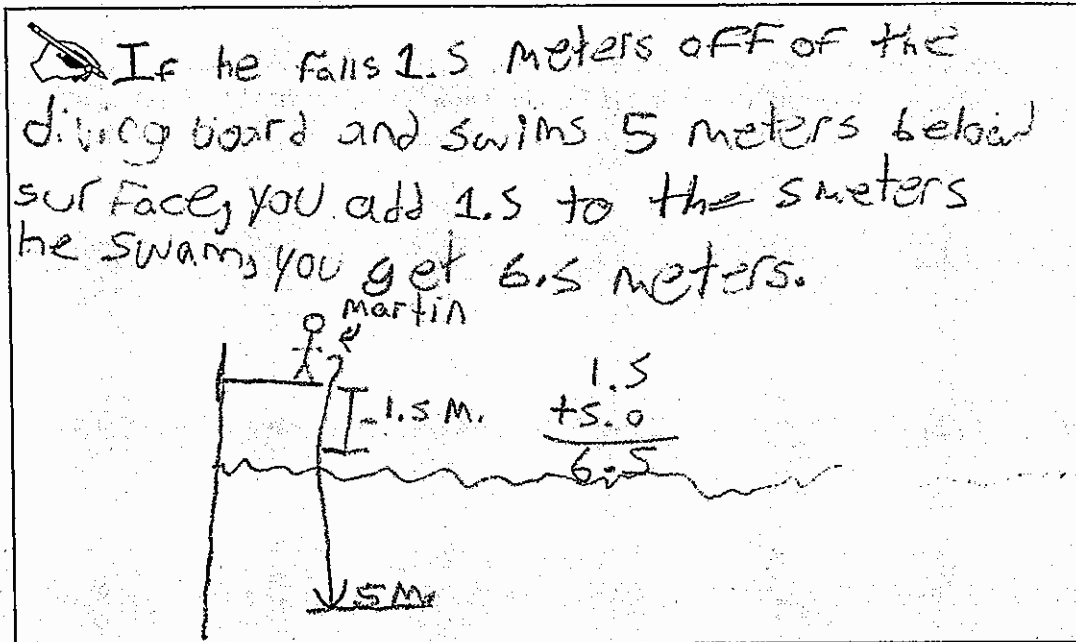 If he falls 1.5 meters off of the
diving board and swims 5 meters below
surface, you add 1.5 to the 5 meters
he swam, you get 6.5 meters.
martin
1.5 M.
1.5
+5.0
6.5
5 M.